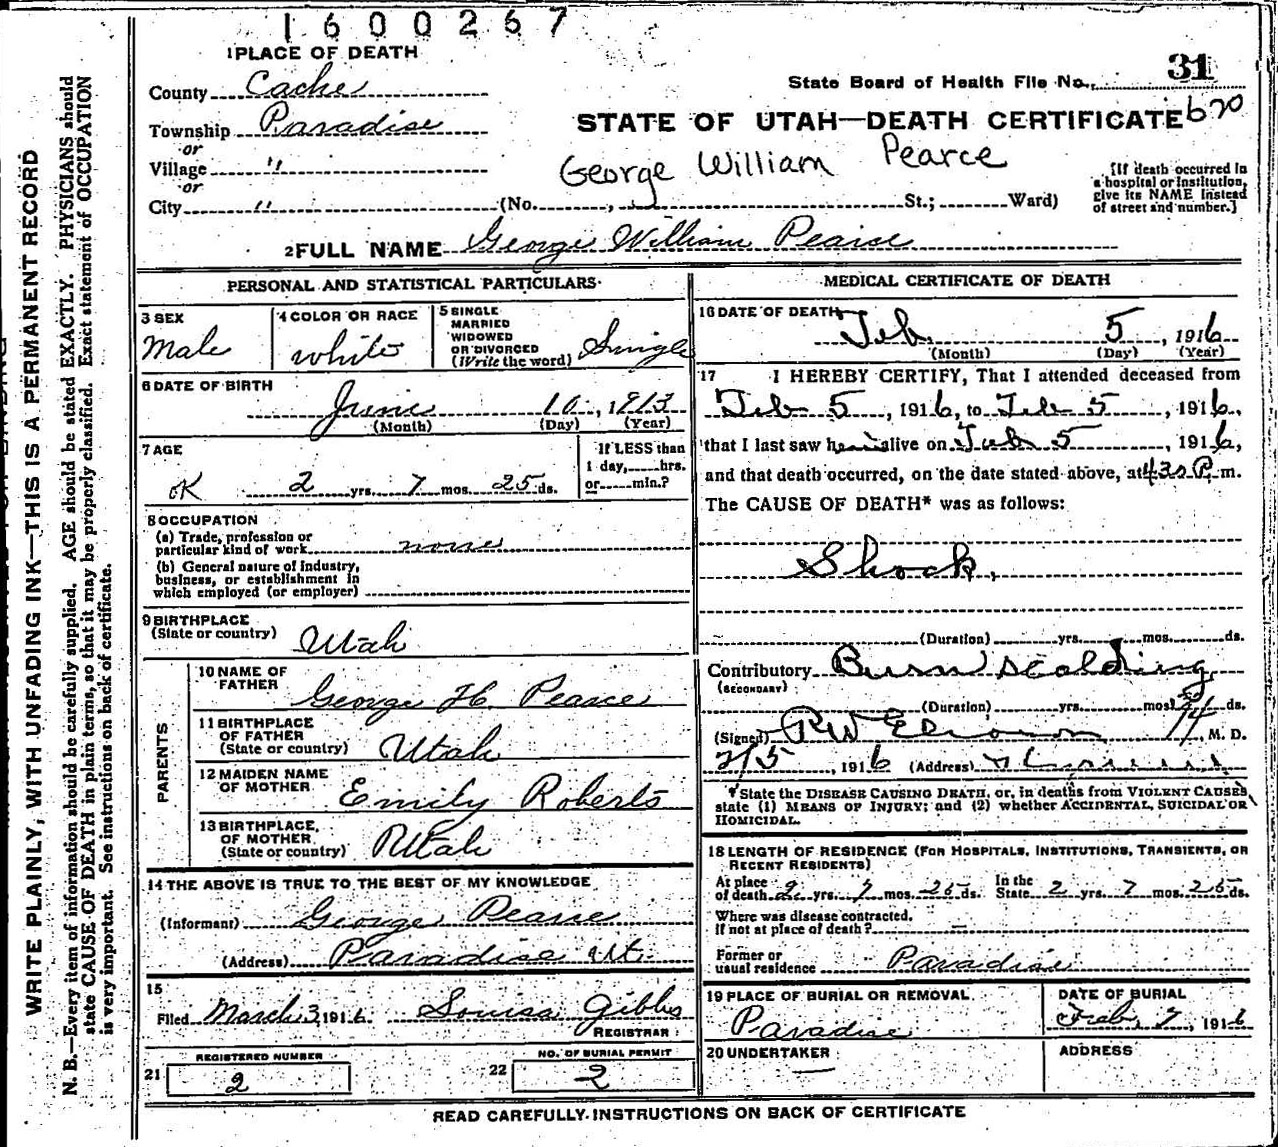 1600267
1 PLACE OF DEATH
County Cache
State Board of Health File No. 31
Township Paradise
STATE OF UTAH—DEATH CERTIFICATE 620
or
Village "
George William Pearce
[If death occurred in
a hospital or institution,
give its NAME instead
of street and number.]
or
City " (No. , St.; Ward)
2 FULL NAME George William Pearce
PERSONAL AND STATISTICAL PARTICULARS
3 SEX
Male
4 COLOR OR RACE
white
5 SINGLE
MARRIED
WIDOWED
OR DIVORCED
(Write the word) Single
6 DATE OF BIRTH
June 10, 1913
(Month) (Day) (Year)
7 AGE
OK 2 yrs. 7 mos. 25 ds.
If LESS than
1 day, hrs.
or min.?
8 OCCUPATION
(a) Trade, profession or
particular kind of work none
(b) General nature of industry,
business, or establishment in
which employed (or employer)
9 BIRTHPLACE
(State or country) Utah
PARENTS
10 NAME OF
FATHER George H. Pearce
11 BIRTHPLACE
OF FATHER
(State or country) Utah
12 MAIDEN NAME
OF MOTHER Emily Roberts
13 BIRTHPLACE
OF MOTHER
(State or country) Utah
14 THE ABOVE IS TRUE TO THE BEST OF MY KNOWLEDGE
(Informant) George Pearce
(Address) Paradise Ut.
15
Filed March 3, 1916. Louisa Gibbs
REGISTRAR
REGISTERED NUMBER
21 2
NO. OF BURIAL PERMIT
22 2
MEDICAL CERTIFICATE OF DEATH
16 DATE OF DEATH
Feb. 5, 1916
(Month) (Day) (Year)
17 I HEREBY CERTIFY, That I attended deceased from
Feb 5, 1916, to Feb 5, 1916,
that I last saw him alive on Feb 5, 1916,
and that death occurred, on the date stated above, at 430 P. m.
The CAUSE OF DEATH* was as follows:
Shock,
(Duration) yrs. mos. ds.
Contributory Burn scalding
(SECONDARY)
(Duration) yrs. mos. ds.
(Signed) RW , M. D.
2/5, 1916 (Address)
*State the DISEASE CAUSING DEATH, or, in deaths from VIOLENT CAUSES,
state (1) MEANS OF INJURY; and (2) whether ACCIDENTAL, SUICIDAL OR
HOMICIDAL.
18 LENGTH OF RESIDENCE (FOR HOSPITALS, INSTITUTIONS, TRANSIENTS, OR
RECENT RESIDENTS)
At place of death 2 yrs. 7 mos. 25 ds. In the State 2 yrs. 7 mos. 25 ds.
Where was disease contracted,
if not at place of death? —
Former or
usual residence Paradise
19 PLACE OF BURIAL OR REMOVAL
Paradise
DATE OF BURIAL
Feb. 7, 1916
20 UNDERTAKER
—
ADDRESS
READ CAREFULLY INSTRUCTIONS ON BACK OF CERTIFICATE
WRITE PLAINLY, WITH UNFADING INK—THIS IS A PERMANENT RECORD
N. B.—Every item of information should be carefully supplied. AGE should be stated EXACTLY. PHYSICIANS should
state CAUSE OF DEATH in plain terms, so that it may be properly classified. Exact statement of OCCUPATION
is very important. See instructions on back of certificate.